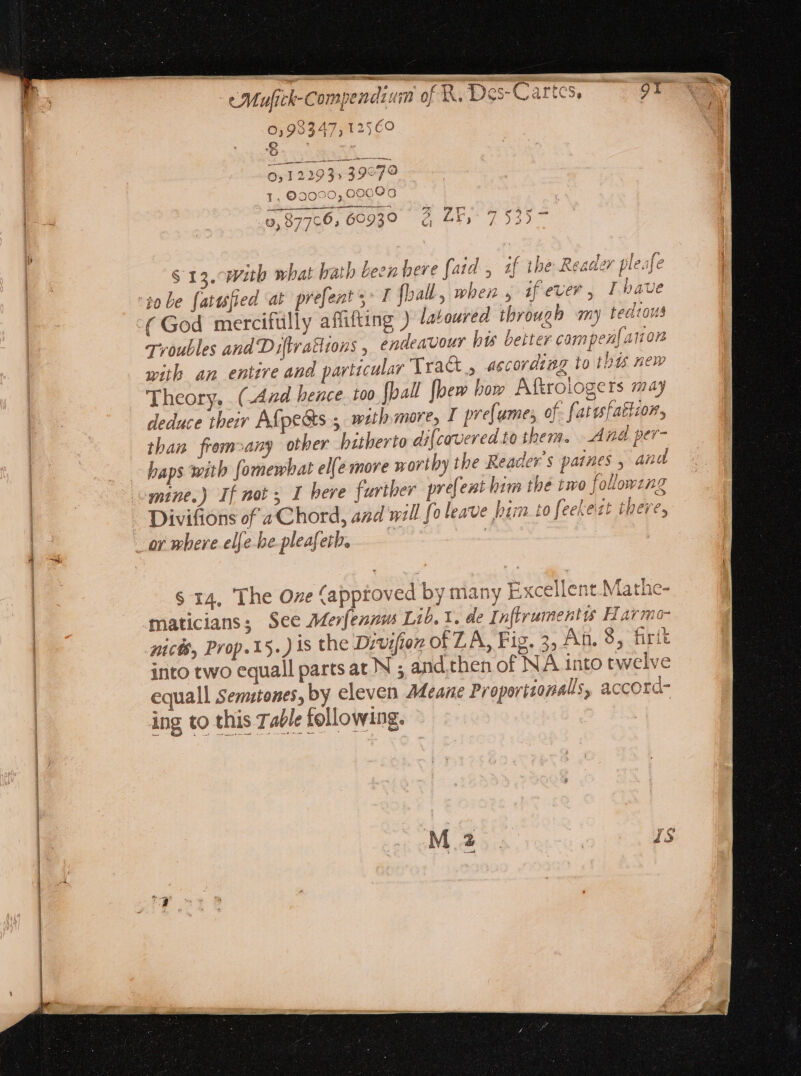 Muſick-Compendium of R. Des-Cartes, 91
0,98347,12560
8
0,12293,39070
1,00000,00000
0,87706,60930 Z ZF, 7 535-
§ 13. With what hath been here ſaid, if the Reader pleaſe
to be ſatisfied at preſent; I ſhall, when, if ever, I have
(God mercifully aſſiſting) laboured through my tedious
Troubles and Diſtractions, endeavour his better compenſation
with an entire and particular Tract, according to this new
Theory. (And hence too ſhall ſhew how Aſtrologers may
deduce their Aſpects; with more, I preſume, of ſatisfaction,
than from any other hitherto diſcovered to them. And per-
haps with ſomewhat elſe more worthy the Reader's paines, and
mine.) If not; I here further preſent him the two following
Diviſions of a Chord, and will ſo leave him to ſeeke it there,
or where elſe he pleaſeth.
§ 14. The One (approved by many Excellent Mathe-
maticians; See Merſennus Lib. 1. de Inſtrumentis Harmo-
nicis, Prop. 15.) is the Diviſion of ZA, Fig. 3, An. 8, firſt
into two equall parts at N; and then of NA into twelve
equall Semitones, by eleven Meane Proportionalls, accord-
ing to this Table following.
M 2 IS